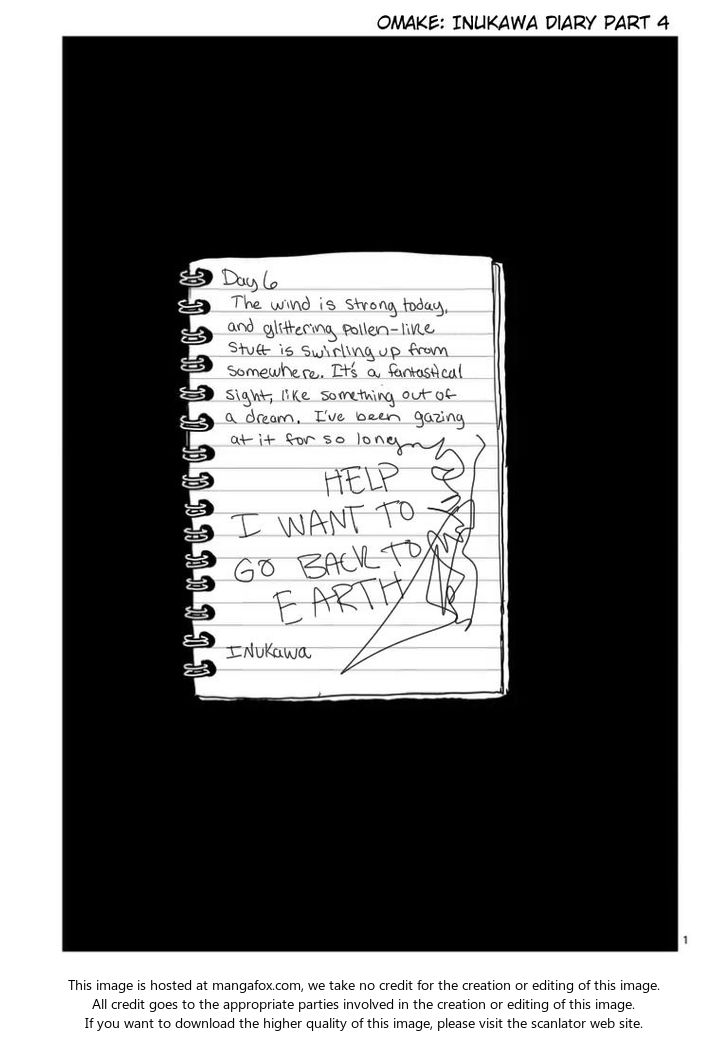 OMAKE: INUKAWA DIARY PART 4
Day 6
The wind is strong today,
and glittering pollen-like
stuff is swirling up from
somewhere. It's a fantastical
sight, like something out of
a dream. I've been gazing
at it for so long
HELP
I WANT TO
GO BACK TO
EARTH
INUKAWA
1
This image is hosted at mangafox.com, we take no credit for the creation or editing of this image.
All credit goes to the appropriate parties involved in the creation or editing of this image.
If you want to download the higher quality of this image, please visit the scanlator web site.